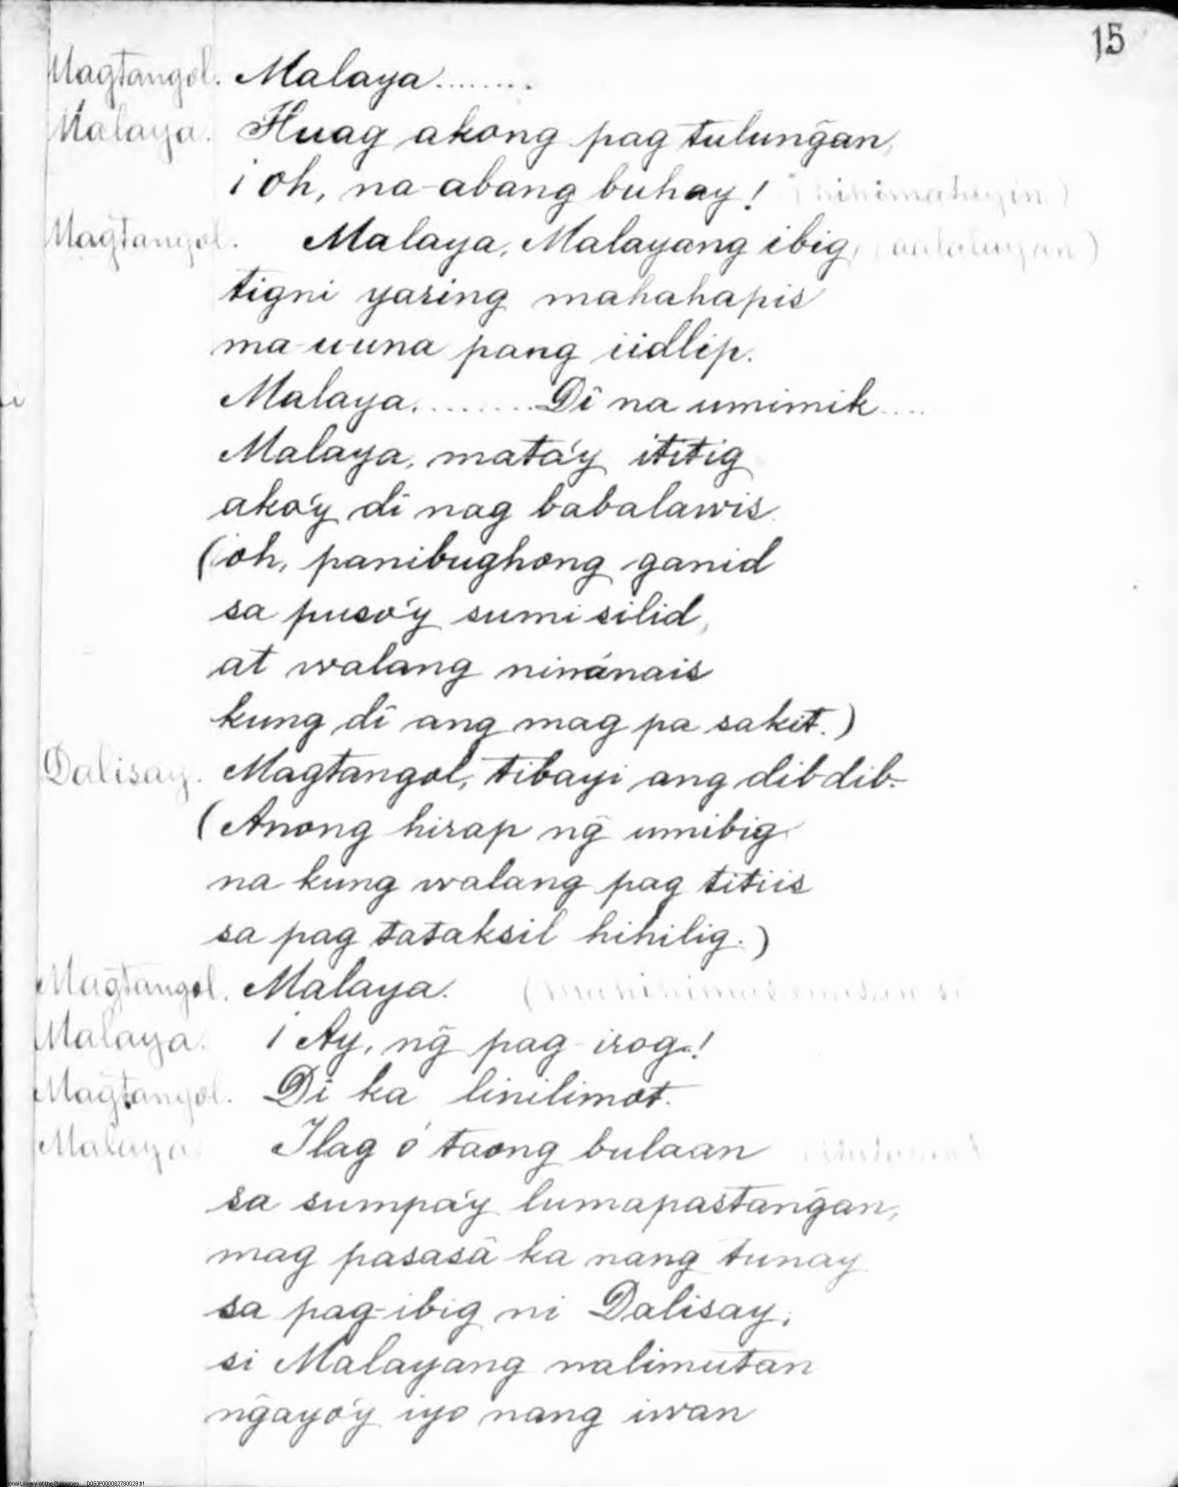 15
Magtangol. Malaya........
Malaya. Huag akong pag tulung̃an,
¡Oh, na-abang buhay! (hihimatayin)
Magtangol. Malaya, Malayang ibig, (aalalayan)
tigni yaring mahahapis
ma-u-una pang iidlip.
Malaya.........Dî na umimik....
Malaya, mata'y ititig
ako'y dî nag babalawis.
(¡oh, panibughong ganid
sa puso'y sumisilid,
at walang ninánais
kung dî ang mag pa sakit.)
Dalisay. Magtangol, tibayi ang dib-dib.
(Anong hirap ng̃ umibig
na kung walang pag titiis
sa pag tataksil hihilig.)
Magtangol. Malaya. (mahihimasmasan si
Malaya. ¡Ay, ng̃ pag-irog!
Magtangol. Dî ka linilimot.
Malaya. Ilag ó taong bulaan
sa sumpa'y lumapastang̃an,
mag pasasà ka nang tunay
sa pag-ibig ni Dalisay,
si Malayang nalimutan
ng̃ayo'y iyo nang iwan